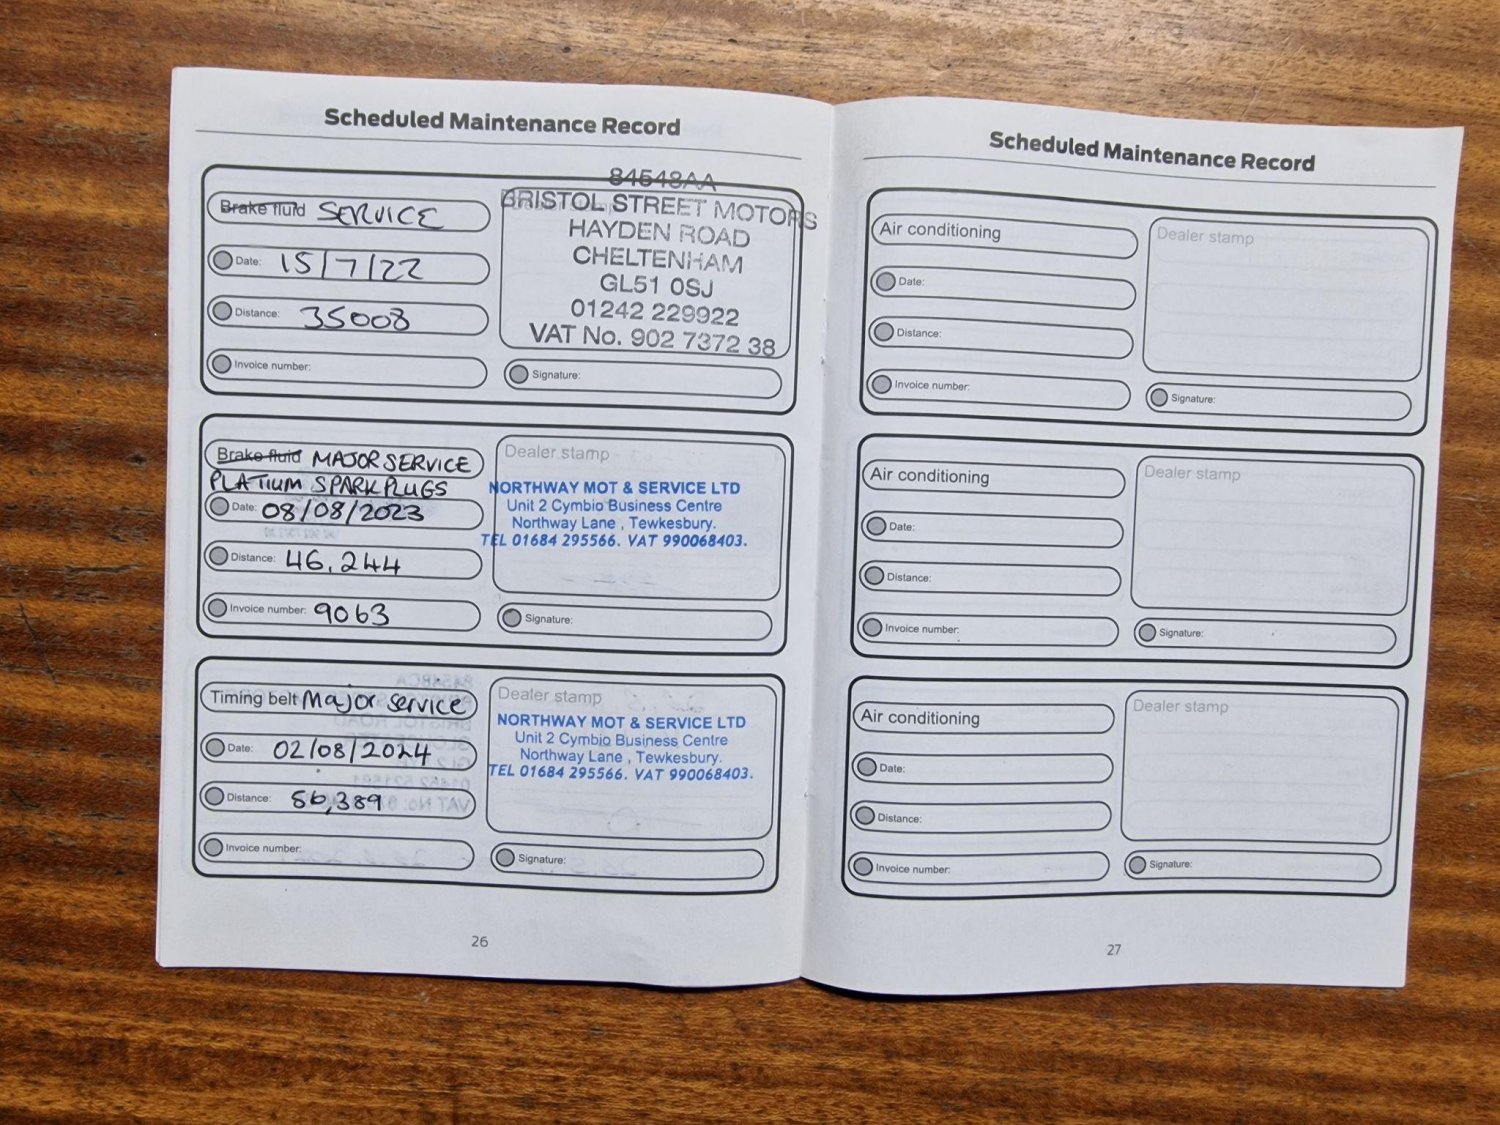 Scheduled Maintenance Record
84548AA
Brake fluid SERVICE
BRISTOL STREET MOTORS
HAYDEN ROAD
CHELTENHAM
GL51 0SJ
01242 229922
VAT No. 902 7372 38
Date: 15/7/22
Distance: 35008
Invoice number:
Signature:
Brake fluid MAJOR SERVICE
PLATIUM SPARK PLUGS
Date: 08/08/2023
Distance: 46,244
Invoice number: 9063
Dealer stamp
NORTHWAY MOT & SERVICE LTD
Unit 2 Cymbio Business Centre
Northway Lane , Tewkesbury.
TEL 01684 295566. VAT 990068403.
Signature:
Timing belt Major service
Date: 02/08/2024
Distance: 56,389
Invoice number:
Dealer stamp
NORTHWAY MOT & SERVICE LTD
Unit 2 Cymbio Business Centre
Northway Lane , Tewkesbury.
TEL 01684 295566. VAT 990068403.
Signature:
26
Scheduled Maintenance Record
Air conditioning
Date:
Distance:
Invoice number:
Dealer stamp
Signature:
Air conditioning
Date:
Distance:
Invoice number:
Dealer stamp
Signature:
Air conditioning
Date:
Distance:
Invoice number:
Dealer stamp
Signature:
27